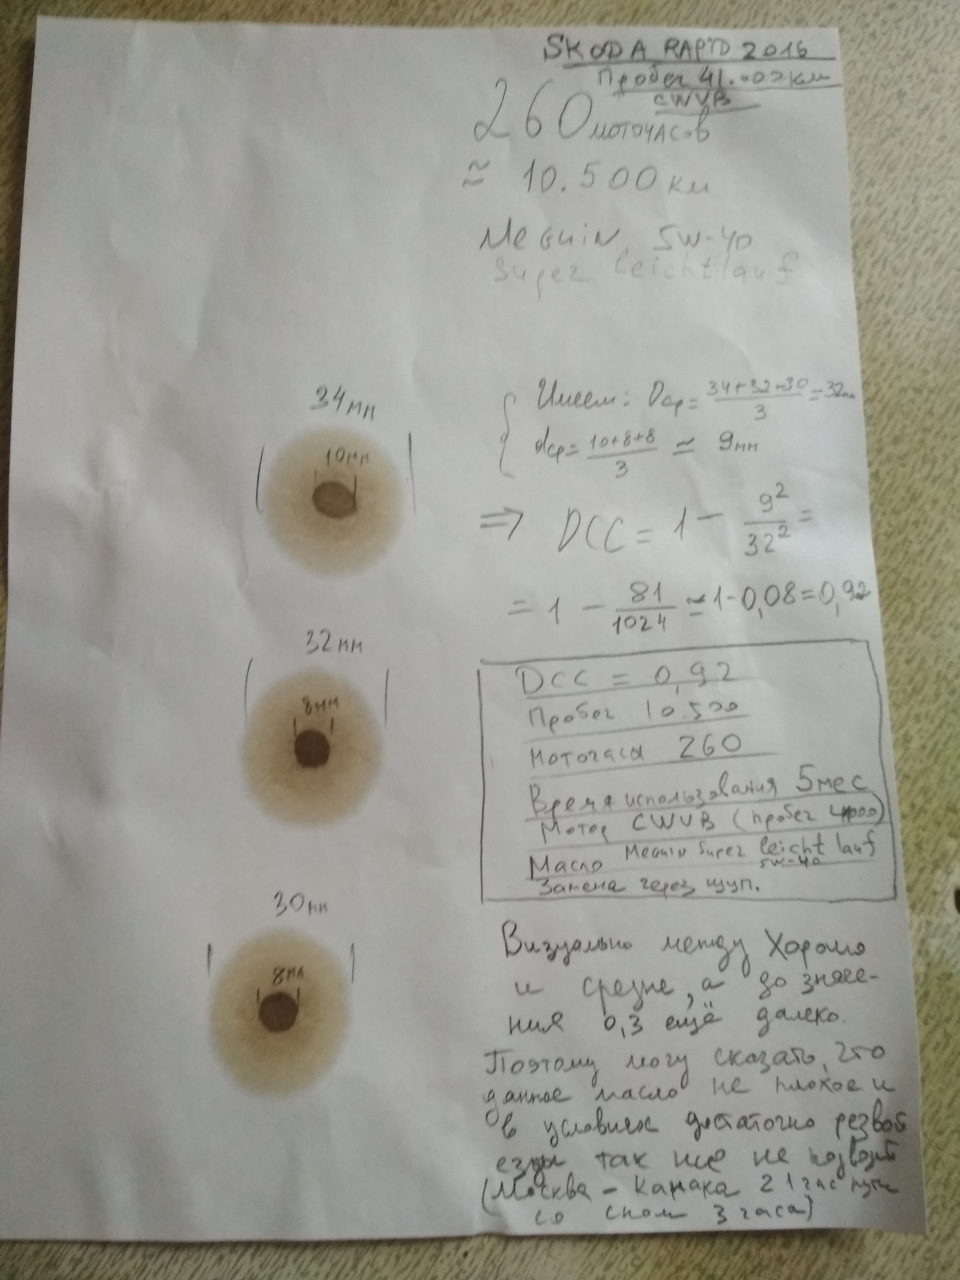 SKODA RAPID 2016
Пробег 41.000 км
CWVB
260 моточасов
≈ 10.500 км
Meguin 5W-40
Super leichtlauf
34мм
10мм
Имеем: Dср = (34+32+30)/3 = 32мм
dср = (10+8+8)/3 ≈ 9мм
⇒ DCC = 1 - 9²/32² =
= 1 - 81/1024 ≈ 1-0,08=0,92
32мм
8мм
DCC = 0,92
Пробег 10.500
Моточасы 260
Время использования 5мес
Мотор CWVB (пробег)
Масло Meguin Super leicht lauf
5W-40
Замена через щуп.
30мм
8мм
Визуально между Хорошо
и средне, а до значе-
ния 0,3 ещё далеко.
Поэтому могу сказать, что
данное масло не плохое и
в условиях достаточно резвой
езды так же не подводит
(Москва - 21час пути
со сном 3 часа)